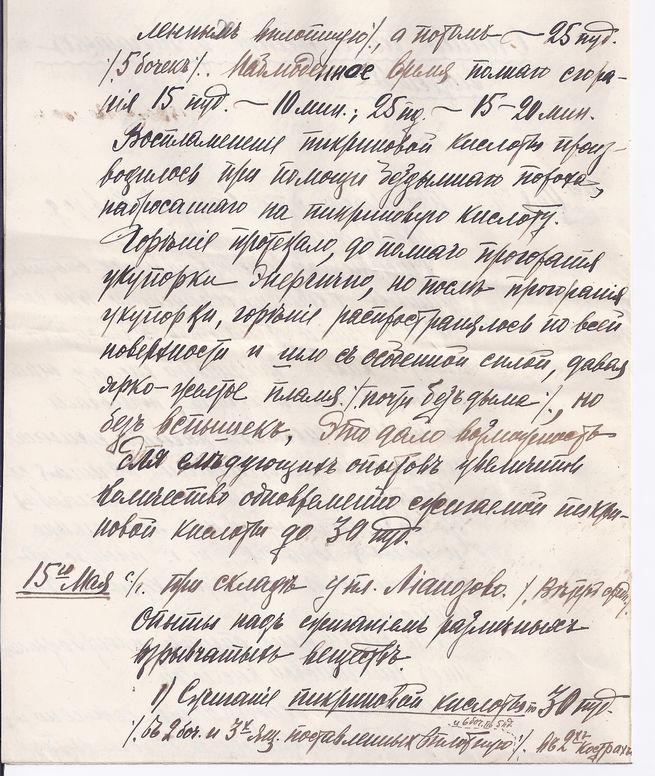 леннымъ вплотную/, а потомъ — 25 пуд.
/5 бочекъ/. Наблюденное время полнаго сгора-
нія 15 пуд. — 10 мин.; 25 пд. — 15–20 мин.
Воспламененіе пикриновой кислоты произ-
водилось при помощи бездымнаго пороха,
набросаннаго на пикриновую кислоту.
Горѣніе протекало, до полнаго прогоранія
укупорки энергично, но послѣ прогоранія
укупорки, горѣніе распространялось по всей
поверхности и шло съ особенной силой, давая
ярко-желтое пламя /почти безъ дыма/, но
безъ вспышекъ. Это дало возможность
для слѣдующихъ опытовъ увеличить
количество одновременно сжигаемой пикри-
новой кислоты до 30 пуд.
15го Мая с/г. при складѣ у пл. Ліанозово. /Вѣтръ
Опыты надъ сжиганіемъ различныхъ
взрывчатыхъ веществъ.
1) Сжиганіе пикриновой кислоты 30 пуд.
и 6 боч. по 5 пд.
/въ 2 боч. и 3хъ ящ. поставленныхъ вплотную/. На 2хъ кострахъ